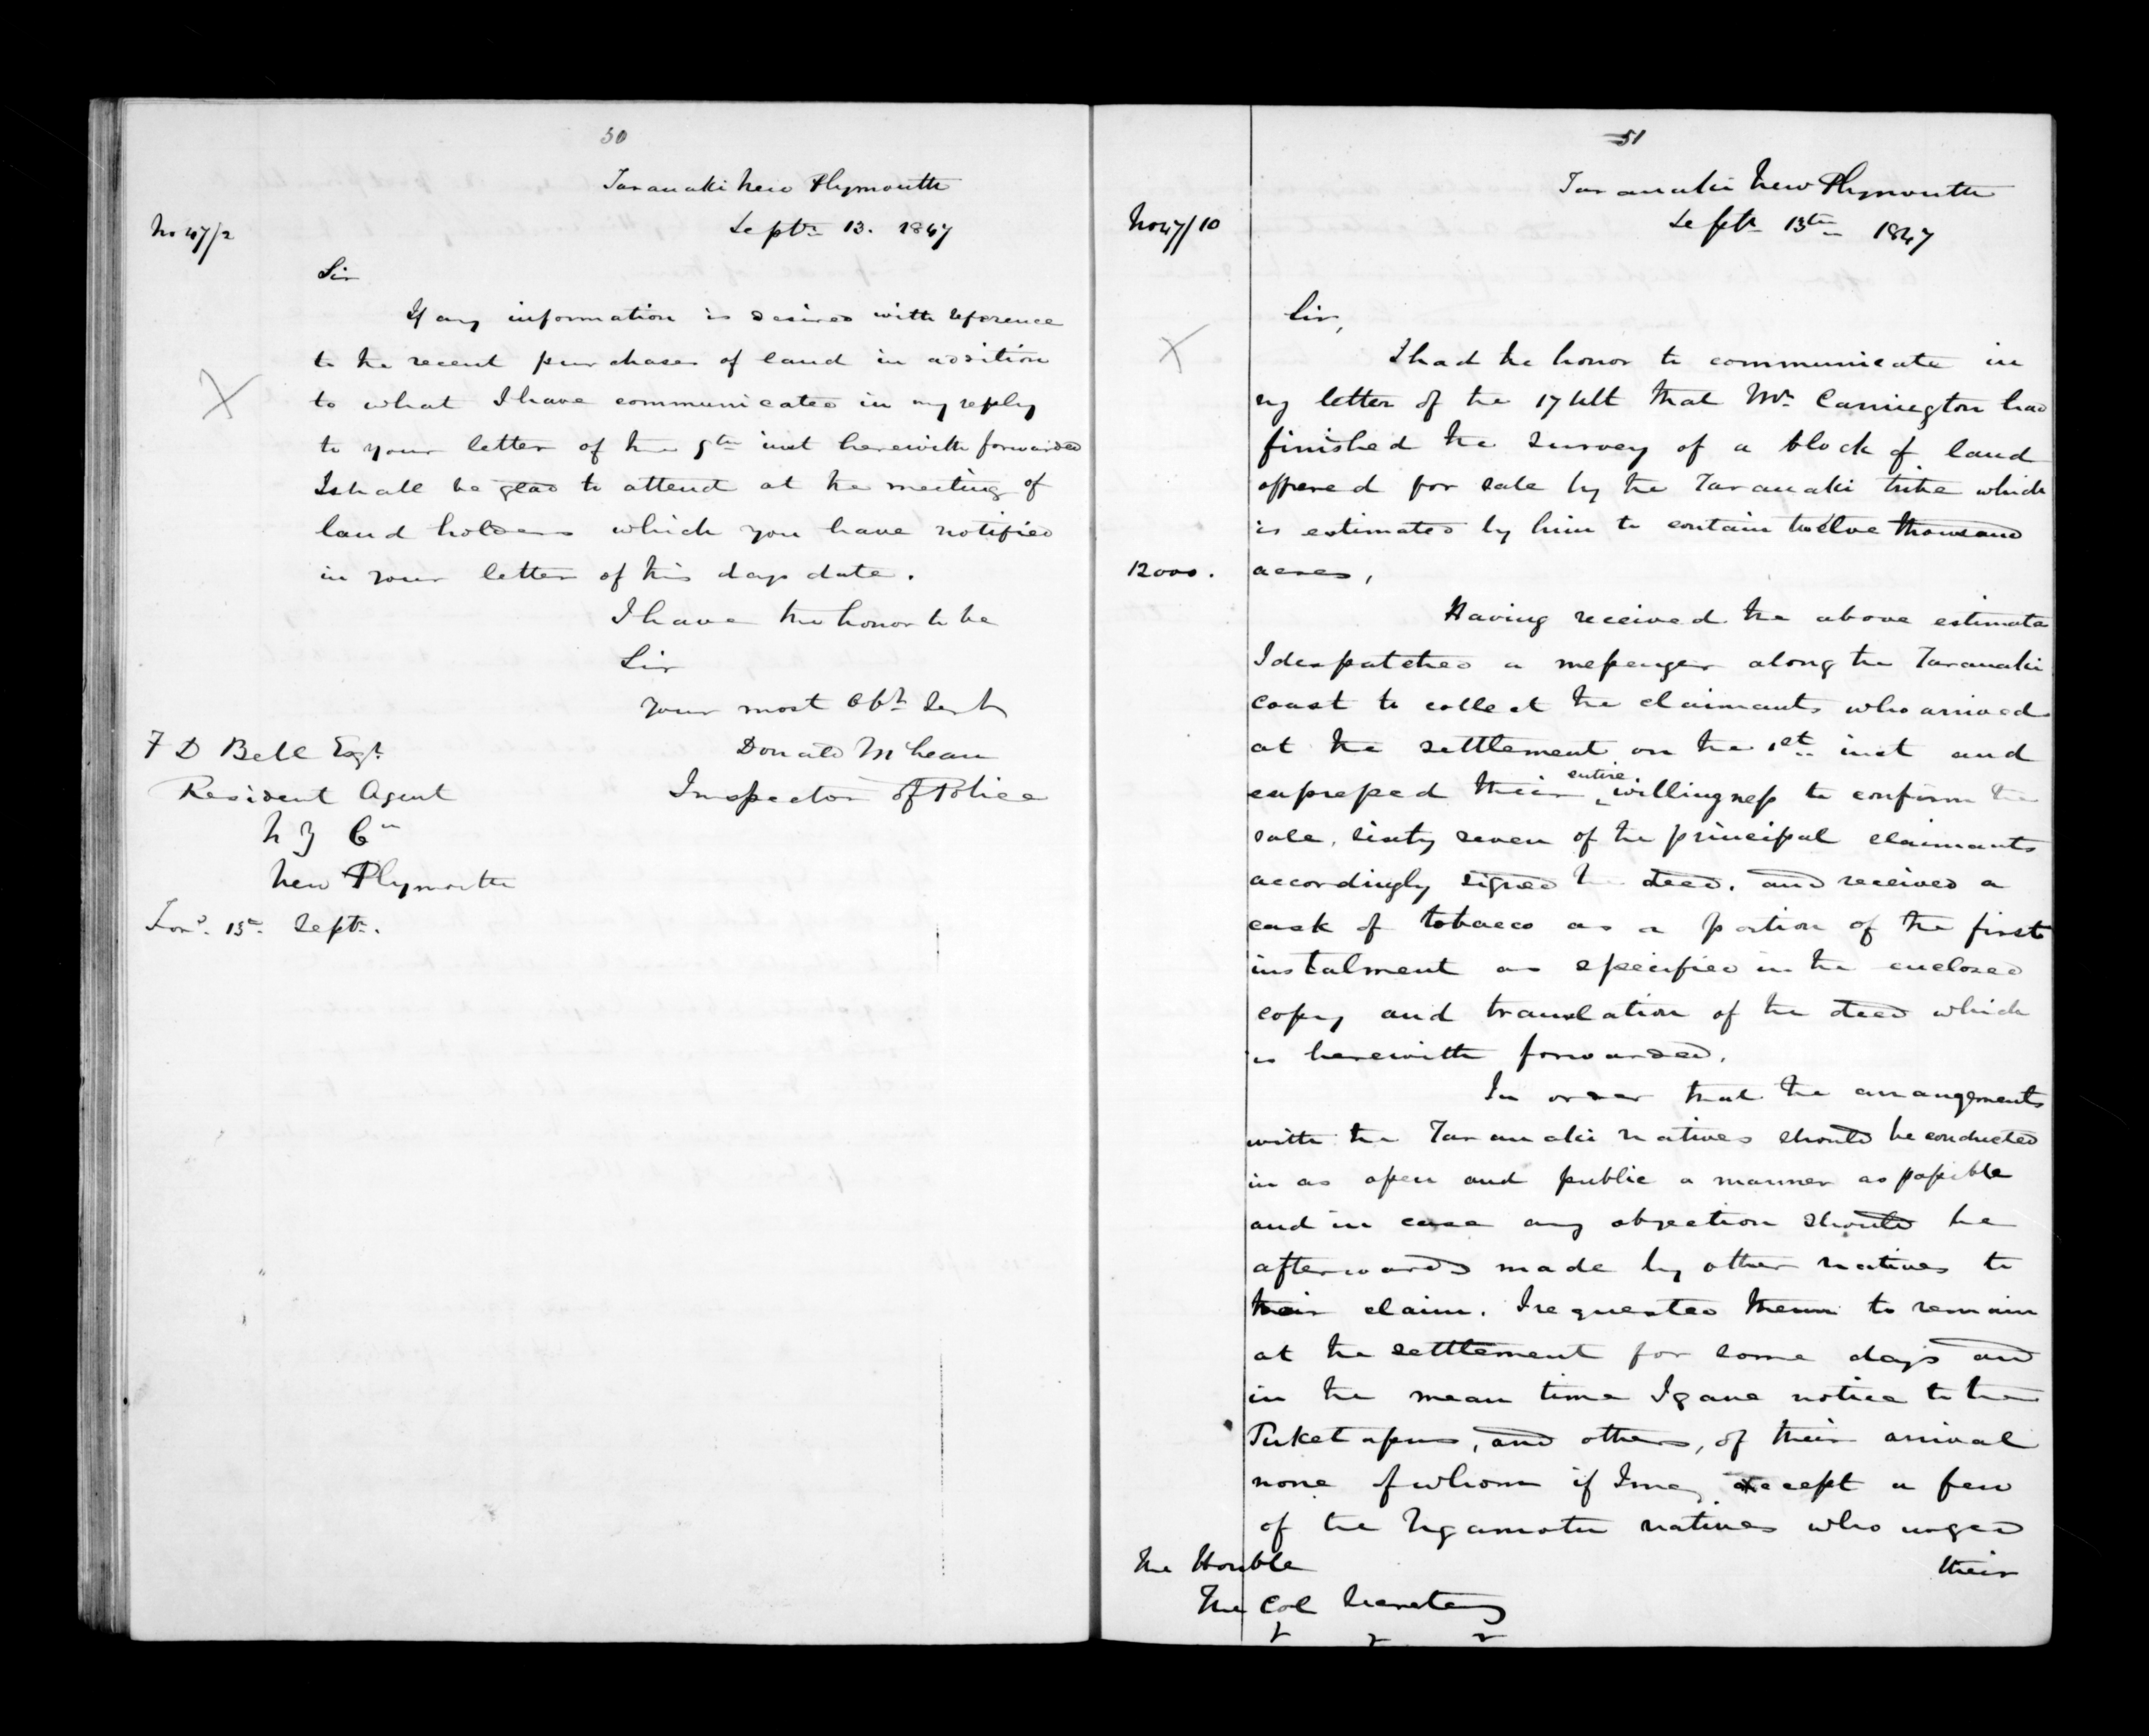 50
Taranaki New Plymouth
No 47/2
Septr 13. 1847
Sir
If any information is desired with reference
to the recent purchases of land in addition
to what I have communicated in my reply
to your letter of the 9th inst herewith forwarded
I shall be glad to attend at the meeting of
land holders which you have notified
in your letter of this days date.
I have the honor to be
Sir
Your most Obt Servt
Donald McLean
Inspector of Police
F D Bell Esqr
Resident Agent
N Z Co
New Plymouth
13th Septr.
51
Taranaki New Plymouth
No 47/10
Septr 13th 1847
Sir,
I had the honor to communicate in
my letter of the 17 Ult that Mr Carrington had
finished the survey of a block of land
offered for sale by the Taranaki tribe which
is estimated by him to contain twelve thousand
12000.
acres,
Having received the above estimate
I despatched a messenger along the Taranaki
coast to collect the claimants who arrived
at the settlement on the 1st inst and
expressed their entire willingness to confirm the
sale, sixty seven of the principal claimants
accordingly signed the deed, and received a
cask of tobacco as a portion of the first
instalment as specified in the enclosed
copy and translation of the deed which
is herewith forwarded.
In order that the arrangements
with the Taranaki natives should be conducted
in as open and public a manner as possible
and in case any objection should be
afterwards made by other natives to
their claim. I requested them to remain
at the settlement for some days and
in the mean time I gave notice to the
Puketapus, and others, of their arrival
none of whom if I may except a few
of the Ngamotu natives who urged
their
The Honble
The Col Secretary